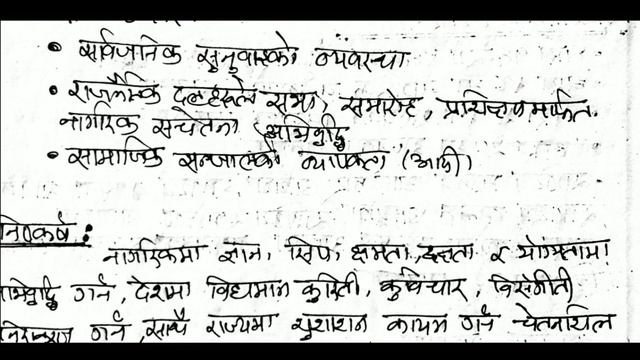 • सार्वजानिक सुनुवाइको व्यवस्था
• राजनैतिक दलहरुले सभा, समारोह, प्रशिक्षण मार्फत
नागरिक सचेतना अभिवृद्धि
• सामाजिक सञ्जालको व्यापकता (आदी)
निष्कर्ष :
नागरिकमा ज्ञान, सिप, क्षमता, दक्षता र योग्यतामा
अभिवृद्धि गर्न, देशमा विद्यमान कुरिती, कुविचार, विसंगती
गर्न, साथै राज्यमा सुशासन कायम गर्न चेतनशिल